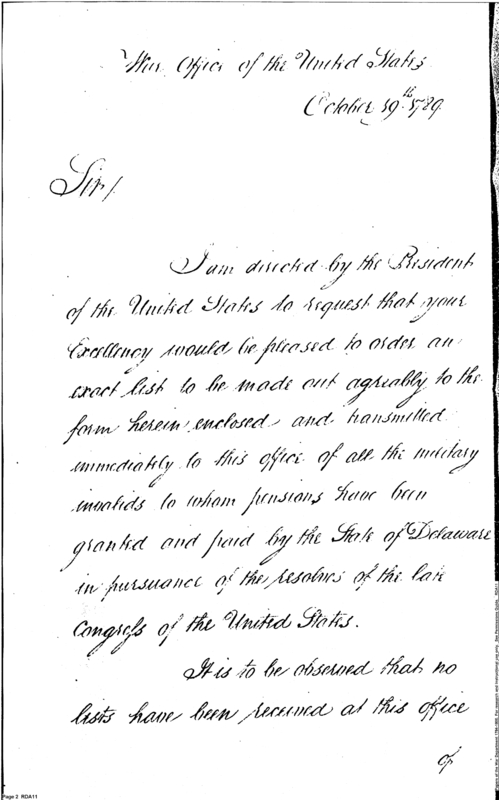 War Office of the United States
October 19th 1789
Sir/
I am directed by the President
of the United States to request that your
Excellency would be pleased to order an
exact list to be made out agreably to the
form herein enclosed and transmitted
immediately to this office of all the military
invalids to whom pensions have been
granted and paid by the State of Delaware
in pursuance of the resolves of the late
Congress of the United States.
It is to be observed that no
lists have been received at this office
of
Page 2 RDA11